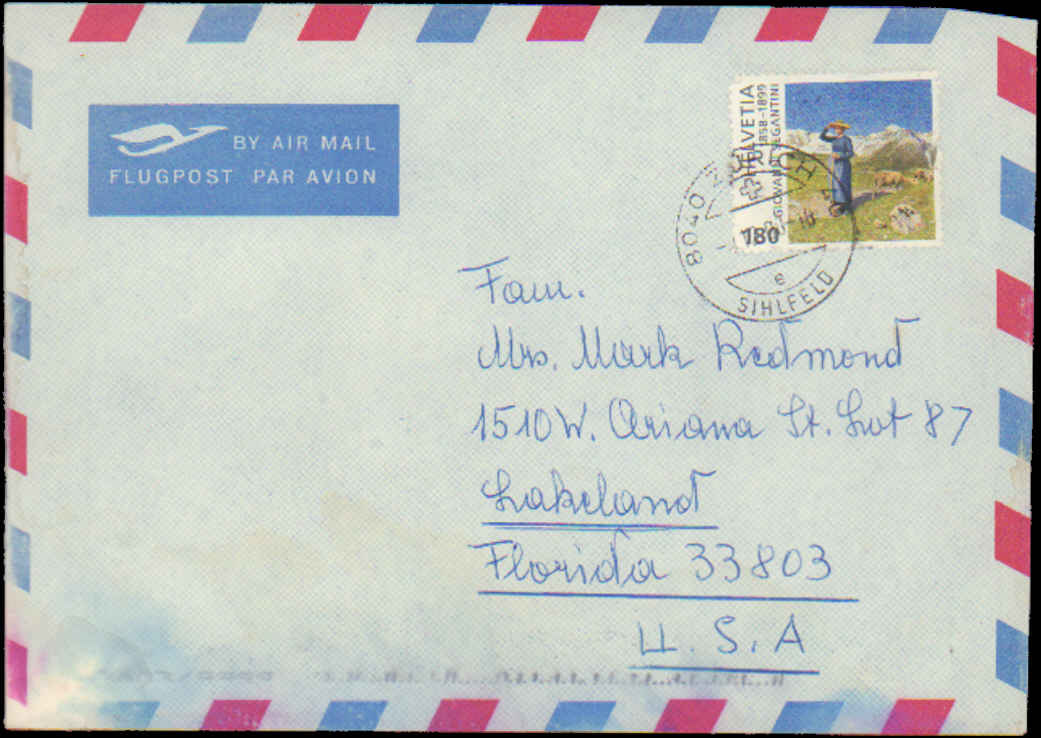 BY AIR MAIL
FLUGPOST PAR AVION
HELVETIA
1858-1899
GIOVANNI SEGANTINI
180
8040 ZÜRICH
e
SIHLFELD
Fam.
Mrs. Mark Redmond
1510 W. Ariana St. Lot 87
Lakeland
Florida 33803
U. S. A